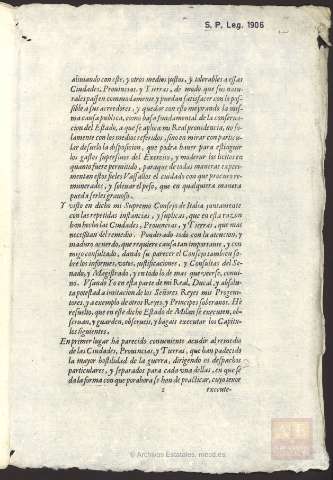 S. P. Leg. 1906
aliuiando con este, y otros medios justos, y tolerables a essas
Ciudades, Prouincias, y Tierras, de modo que sus natu-
rales passen commodamente, y puedan satisfacer con lo pos-
sible a sus acreedores, y quedar con esto mejorando la mis-
ma causa publica, como basa fundamental de la conserua-
cion del Estado, a que se aplica mi Real prouidencia, no so-
lamente con los medios referidos, sino en mirar con particu-
lar desuelo la disposicion, que podra hauer para estinguir
los gastos superfluos del Exercito, y moderar los licitos en
quanto fuere permitido, para que de todas maneras experi-
mentan estos fieles Vassallos el cuidado con que procuro re-
munerarlos, y soleuar el peso, que en qualquiera manera
pueda serles grauoso.
Y visto en dicho mi Supremo Consejo de Italia juntamente
con las repetidas instancias, y suplicas, que en esta razon
han hecho las Ciudades, Prouincias, y Tierras, que mas
necessitan del remedio. Ponderado todo con la atencion, y
maduro acuerdo, que requiere causa tan importante, y con-
migo consultado, dando su parecer el Consejo tambien so-
bre los informes, votos, justificaciones, y Consultas del Se-
nado, y Magistrado, y en todo lo de mas que verse, conui-
no. Vsando Yo en esta parte de mi Real, Ducal, y absolu-
ta potestad a imitacion de los Señores Reyes mis Progeni-
tores, y a exemplo de otros Reyes, y Principes soberanos. He
resuelto, que en este dicho Estado de Milan se executen, ob-
seruan, y guarden, obserueis, y hagais executar los Capitu-
los siguientes.
En primer lugar há parecido conueniente acudir al remedio
de las Ciudades, Prouincias, y Tierras, que han padecido
la mayor hostilidad de la guerra, dirigendo os despachos
particulares, y separados para cada vna dellas, en que se
dà la forma con que por ahora se han de practicar, cuyo tenor
2
excute-
© Archivos Estatales, mecd.es